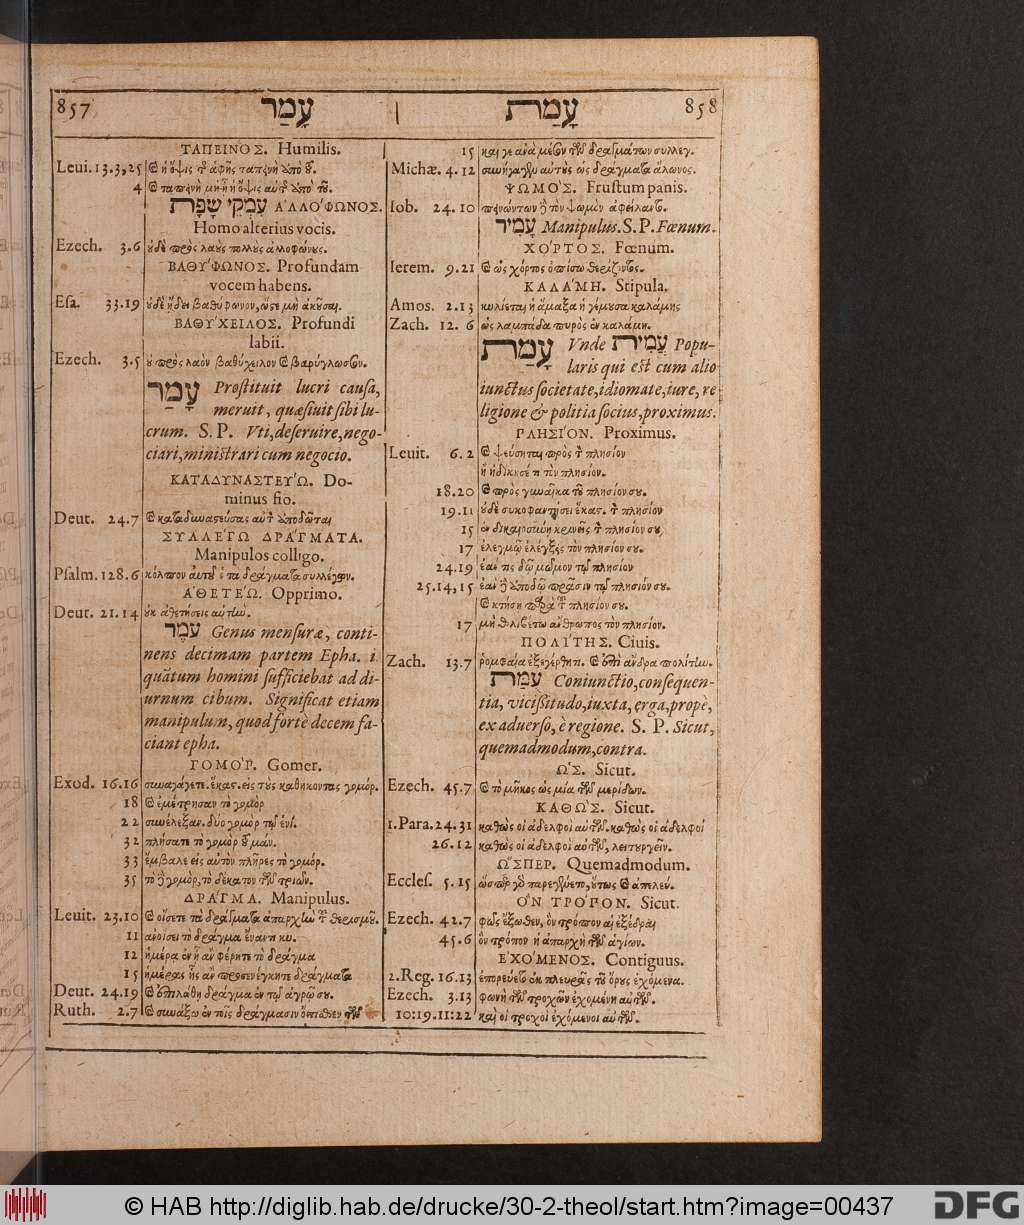 857 עָמַר
ΤΑΠΕΙΝΟΣ. Humilis.
Leui. 13.3,25 καὶ ἡ ὄψις τῆς ἁφῆς ταπεινὴ ἀπὸ τοῦ
4 καὶ ταπεινὴ μὴ ᾖ ἡ ὄψις αὐτῆς ἀπὸ τοῦ.
עִמְקֵי שָׂפָה ἈΛΛΟΦΩΝΟΣ.
Homo alterius vocis.
Ezech. 3.6 οὐδὲ πρὸς λαοὺς πολλοὺς ἀλλοφώνους.
ΒΑΘΥΦΩΝΟΣ. Profundam
vocem habens.
Eſa. 33.19 οὐδὲ ᾔδει βαθύφωνον, ὥστε μὴ ἀκοῦσαι.
ΒΑΘΥΧΕΙΛΟΣ. Profundi
labii.
Ezech. 3.5 οὐ πρὸς λαὸν βαθύχειλον καὶ βαρύγλωσσον.
עָמַר Proſtituit lucri cauſa,
meruit, quæſiuit ſibi lu-
crum. S. P. Vti, deſeruire, nego-
ciari, miniſtrari cum negocio.
ΚΑΤΑΔΥΝΑΣΤΕΥΩ. Do-
minus fio.
Deut. 24.7 καὶ καταδυναστεύσας αὐτὸν ἀποδῶται
ΣΥΛΛΕΓΩ ΔΡΑΓΜΑΤΑ.
Manipulos colligo.
Pſalm. 128.6 κόλπον αὐτοῦ ὁ τὰ δράγματα συλλέγων.
ἈΘΕΤΕΩ. Opprimo.
Deut. 21.14 οὐκ ἀθετήσεις αὐτήν.
עֹמֶר Genus menſuræ, conti-
nens decimam partem Epha. i
quātum homini ſufficiebat ad di-
urnum cibum. Significat etiam
manipulum, quod forte decem fa-
ciant epha.
ΓΟΜΟΡ. Gomer.
Exod. 16.16 συναγάγετε. ἕκας. εἰς τοὺς καθήκοντας γομόρ.
18 καὶ ἐμέτρησαν τὸ γομὸρ
22 συνέλεξαν. δύο γομὸρ τῷ ἑνί.
32 πλήσατε τὸ γομὸρ τοῦ μαν.
33 ἔμβαλε εἰς αὐτὸν πλῆρες τὸ γομόρ.
35 τὸ δὲ γομὸρ, τὸ δέκατον τῶν τριῶν.
ΔΡΑΓΜΑ. Manipulus.
Leuit. 23.10 καὶ οἴσετε τὰ δράγματα ἀπαρχὴν τοῦ θερισμοῦ.
11 ἀνοίσει τὸ δράγμα ἔναντι κυ.
12 ἡμέρα ἐν ᾗ ἂν φέρητε τὸ δράγμα
15 ἡμέρας ἧς ἂν προσενέγκητε δράγματα
Deut. 24.19 καὶ ἐπιλάθῃ δράγμα ἐν τῷ ἀγρῷ σου.
Ruth. 2.7 καὶ συνάξω ἐν τοῖς δράγμασιν ὄπισθεν τῶν
עָמַת 858
15 καί γε ἀνὰ μέσον τῶν δραγμάτων συλλεγ.
Michæ. 4.12 συνήγαγεν αὐτοὺς ὡς δράγματα ἅλωνος.
ΨΩΜΟΣ. Fruſtum panis.
Iob. 24.10 πεινώντων δὲ τὸν ψωμὸν ἀφείλαντο.
עָמִיר Manipulus. S. P. Fœnum.
ΧΟΡΤΟΣ. Fœnum.
Ierem. 9.21 καὶ ὡς χόρτος ὀπίσω θερίζοντος.
ΚΑΛΑΜΗ. Stipula.
Amos. 2.13 κυλίεται ἡ ἅμαξα ἡ γέμουσα καλάμης
Zach. 12.6 ὡς λαμπάδα πυρὸς ἐν καλάμῃ.
עָמַת Vnde עֲמִית Popu-
laris qui eſt cum alio
iunctus ſocietate, idiomate, iure, re
ligione & politia ſocius, proximus.
ΠΛΗΣΙΟΝ. Proximus.
Leuit. 6.2 καὶ ψεύσηται πρὸς τὸν πλησίον
ἢ ἠδίκησέ τι τὸν πλησίον.
18.20 καὶ πρὸς γυναῖκα τοῦ πλησίον σου.
19.11 οὐδὲ συκοφαντήσει ἕκας. τὸν πλησίον
15 ἐν δικαιοσύνῃ κρινεῖς τὸν πλησίον σου,
17 ἐλεγμῷ ἐλέγξεις τὸν πλησίον σου.
24.19 ἐάν τις δῷ μῶμον τῷ πλησίον
25.14,15 ἐὰν δὲ ἀποδῷ πρᾶσιν τῷ πλησίον σου.
καὶ κτήσῃ παρὰ τοῦ πλησίον σου.
17 μὴ θλιβέτω ἄνθρωπος τὸν πλησίον.
ΠΟΛΙΤΗΣ. Ciuis.
Zach. 13.7 ῥομφαία ἐξεγέρθητι. καὶ ἐπὶ ἄνδρα πολίτην.
עֻמַּת Coniunctio, conſequen-
tia, viciſsitudo, iuxta, erga, propè,
ex aduerſo, è regione. S. P. Sicut,
quemadmodum, contra.
ὩΣ. Sicut.
Ezech. 45.7 καὶ τὸ μῆκος ὡς μία τῶν μερίδων.
ΚΑΘΩΣ. Sicut.
1.Para. 24.31 καθὼς οἱ ἀδελφοὶ αὐτῶν. καθὼς οἱ ἀδελφοί
26.12 καθὼς οἱ ἀδελφοὶ αὐτῶν, λειτουργεῖν.
ὭΣΠΕΡ. Quemadmodum.
Eccleſ. 5.15 ὥσπερ γὰρ παρεγένετο, οὕτως καὶ ἀπελεύ.
ὋΝ ΤΡΟΠΟΝ. Sicut.
Ezech. 42.7 φῶς ἔξωθεν, ὃν τρόπον αἱ ἐξέδραι
45.6 ὃν τρόπον ἡ ἀπαρχὴ τῶν ἁγίων.
ἘΧΟΜΕΝΟΣ. Contiguus.
2.Reg. 16.13 ἐπορεύετο ἐκ πλευρᾶς τοῦ ὄρους ἐχόμενα.
Ezech. 3.13 φωνὴ τῶν τροχῶν ἐχομένη αὐτῶν.
10:19.11:22 καὶ οἱ τροχοὶ ἐχόμενοι αὐτῶν.
© HAB http://diglib.hab.de/drucke/30-2-theol/start.htm?image=00437 DFG